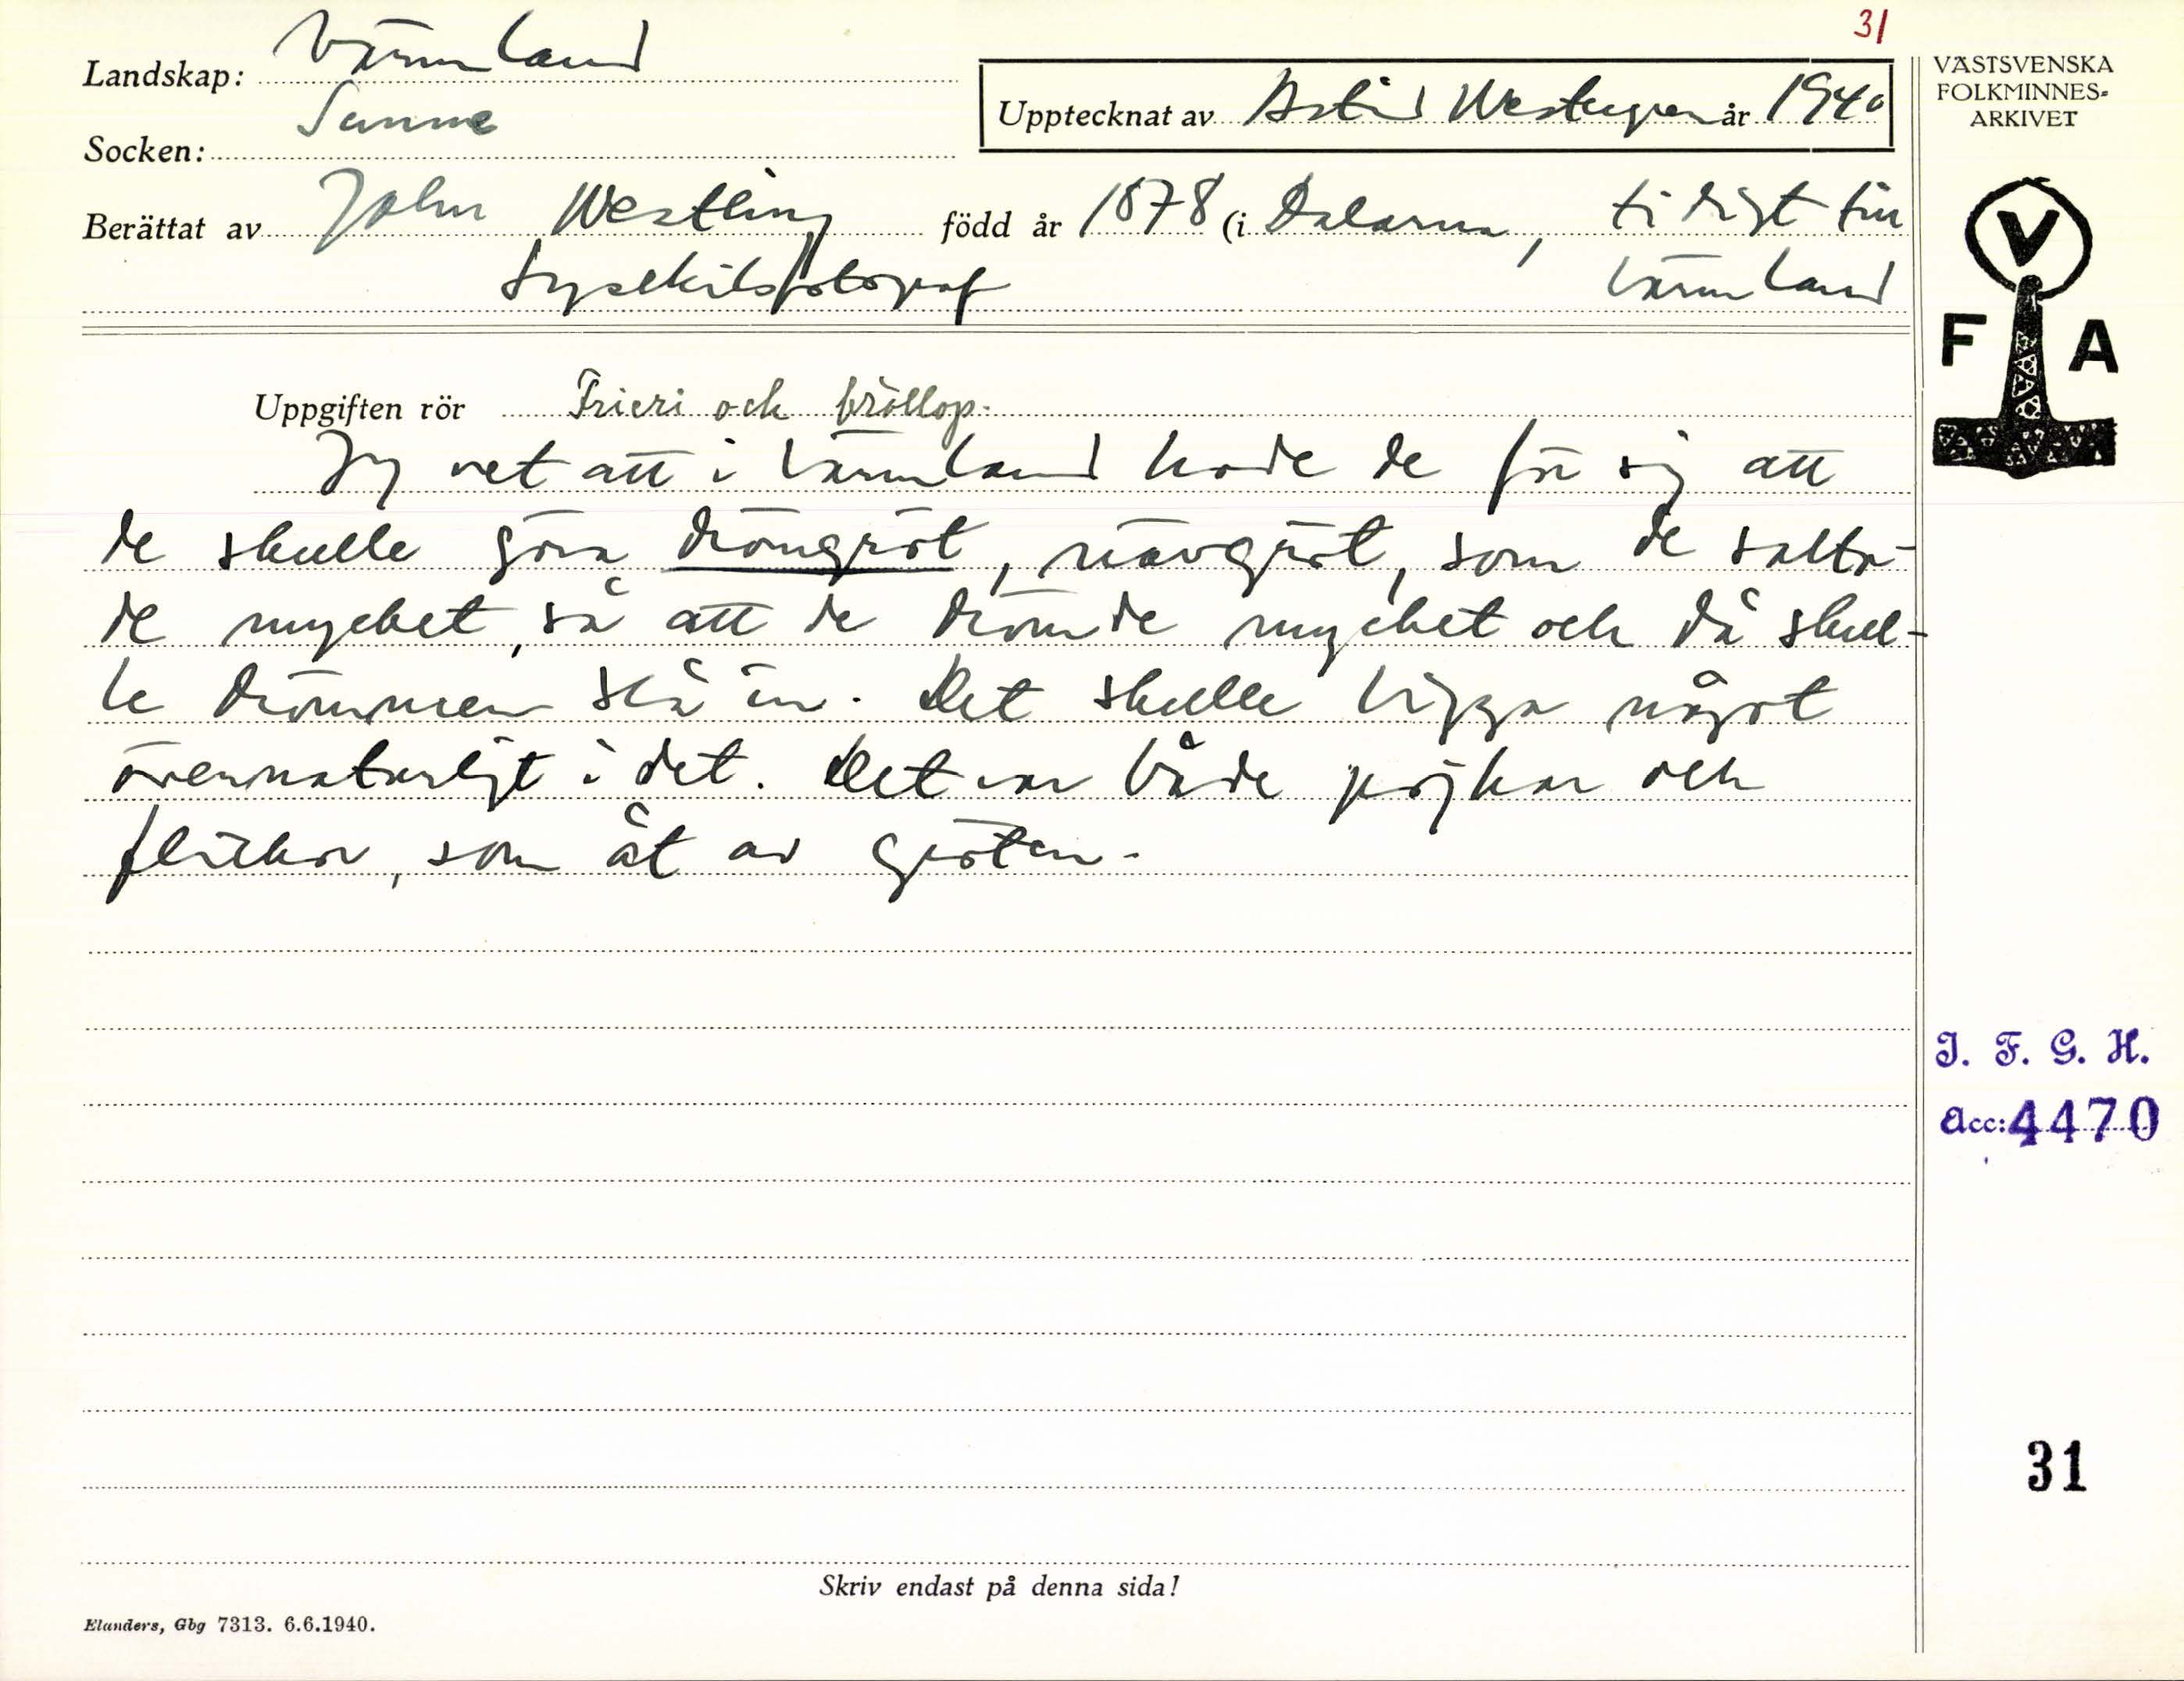 31
Landskap: Värmland
Socken: Sunne
Upptecknat av Astrid Westergren år 1940
Berättat av John Westling född år 1878 (i Dalarna, tidigt till
Lysekilsfotograf Värmland
Uppgiften rör Frieri och bröllop.
Jag vet att i Värmland hade de för sig att
de skulle göra drömgröt, nävgröt, som de salta-
de mycket, så att de drömde mycket och då skul-
le drömmen slå in. Det skulle ligga något
övernaturligt i det. Det var både pojkar och
flickor, som åt av gröten.
Skriv endast på denna sida!
Elanders, Gbg 7313. 6.6.1940.
VÄSTSVENSKA
FOLKMINNES-
ARKIVET
V
F A
I. F. G. H.
Acc: 4470
31